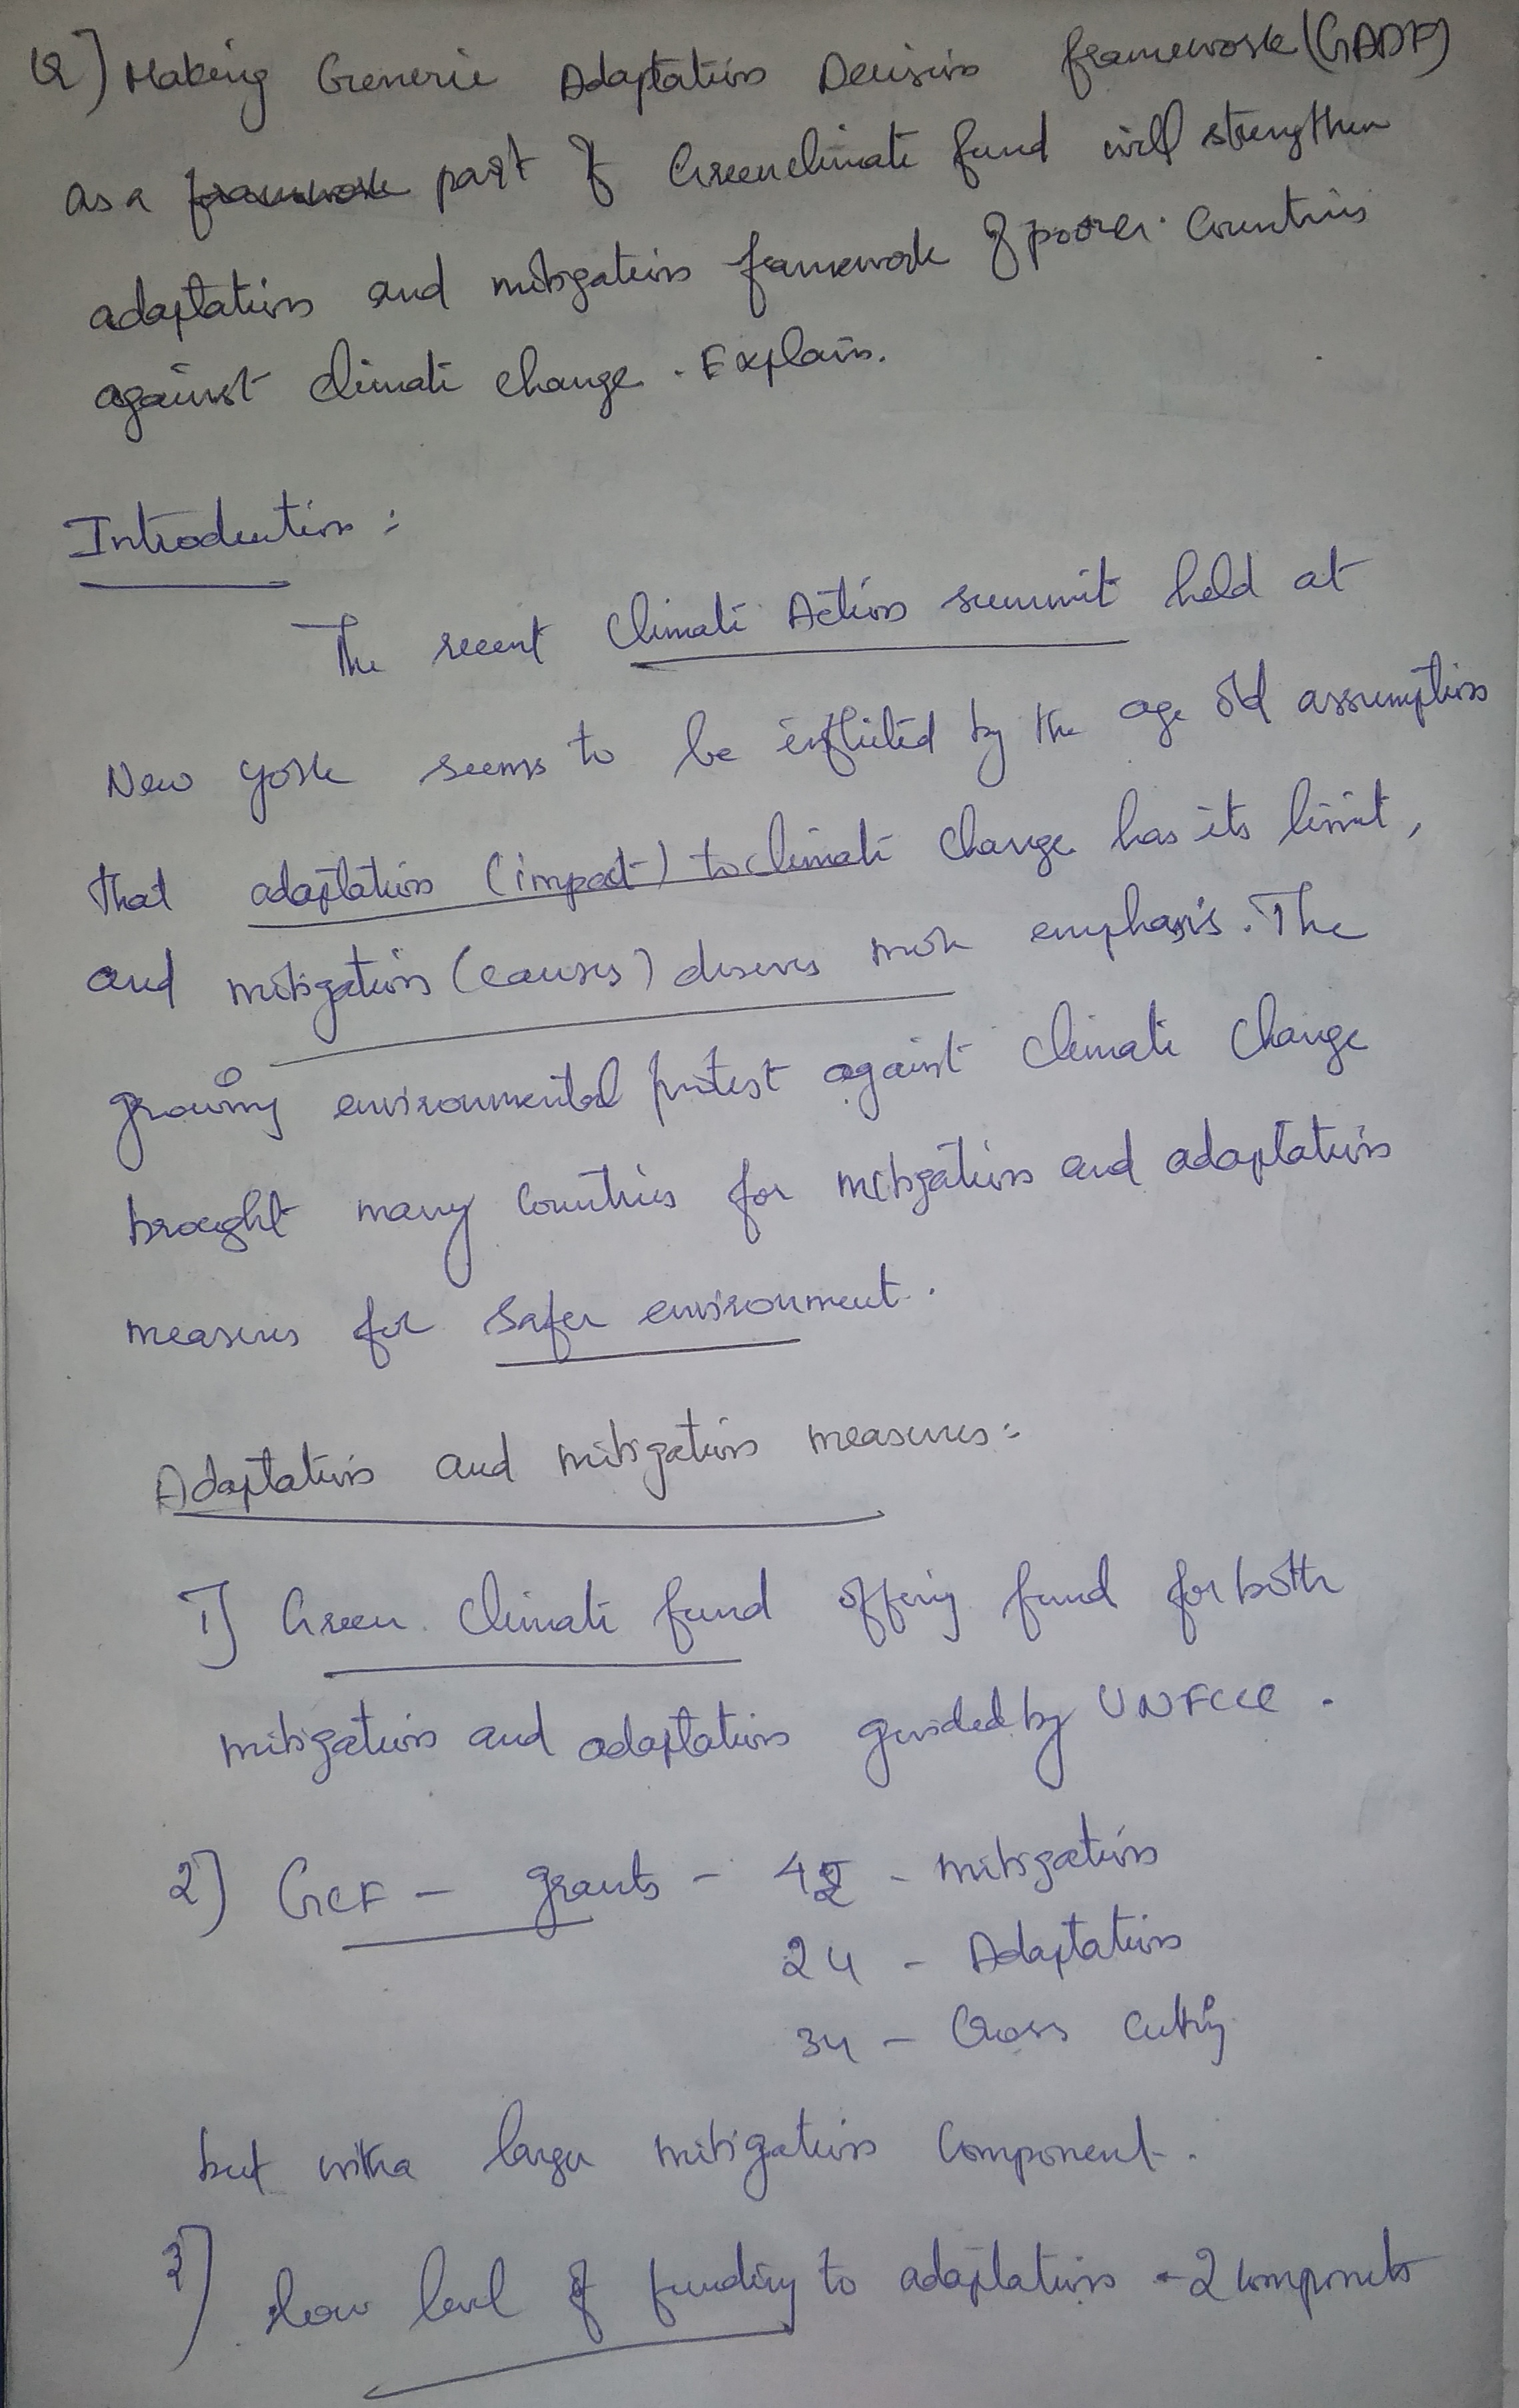 Q] Making Generic Adaptation Decision framework (GADF)
as a framework part of Green climate fund will strengthen
adaptation and mitigation framework of poorer countries
against climate change. Explain.
Introduction :
The recent Climate Action summit held at
New York seems to be inflicted by the age old assumption
that adaptation (impact) to climate change has its limit,
and mitigation (causes) deserves more emphasis. The
growing environmental protest against climate change
brought many countries for mitigation and adaptation
measures for safer environment.
Adaptation and mitigation measures :
1] Green Climate fund offering fund for both
mitigation and adaptation guided by UNFCCC.
2) GCF - grants - 42 - mitigation
24 - Adaptation
34 - Cross cutting
but with a larger mitigation component.
3) low level of funding to adaptation - 2 components